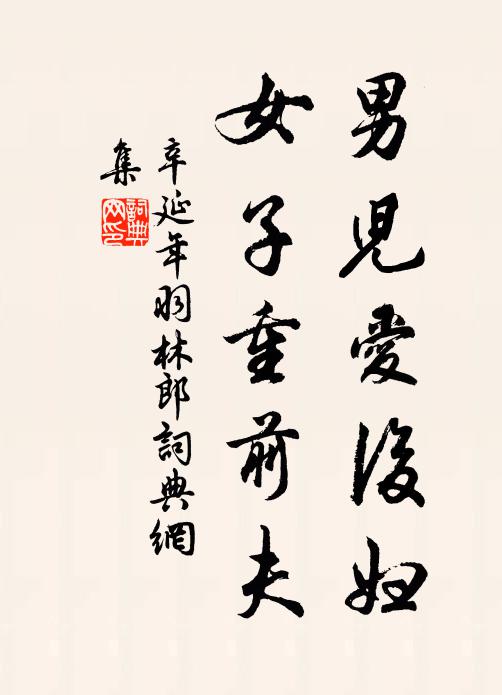 男兒愛後婦
女子重前夫
辛延年羽林郎詞典網
集
詞典
网印